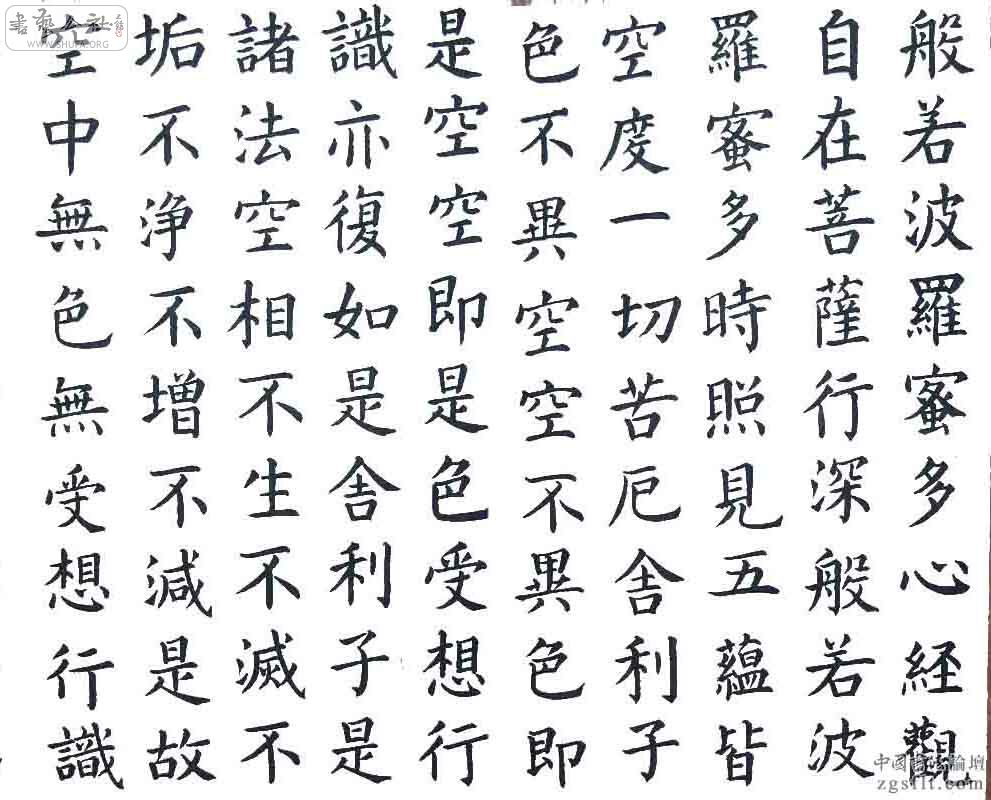 般若波羅蜜多心経觀
自在菩薩行深般若波
羅蜜多時照見五蘊皆
空度一切苦厄舎利子
色不異空空不異色即
是空空即是色受想行
識亦復如是舎利子是
諸法空相不生不滅不
垢不浄不増不減是故
空中無色無受想行識
書藝公社
WWW.SHUFA.ORG
中国書法論壇
zgsflt.com